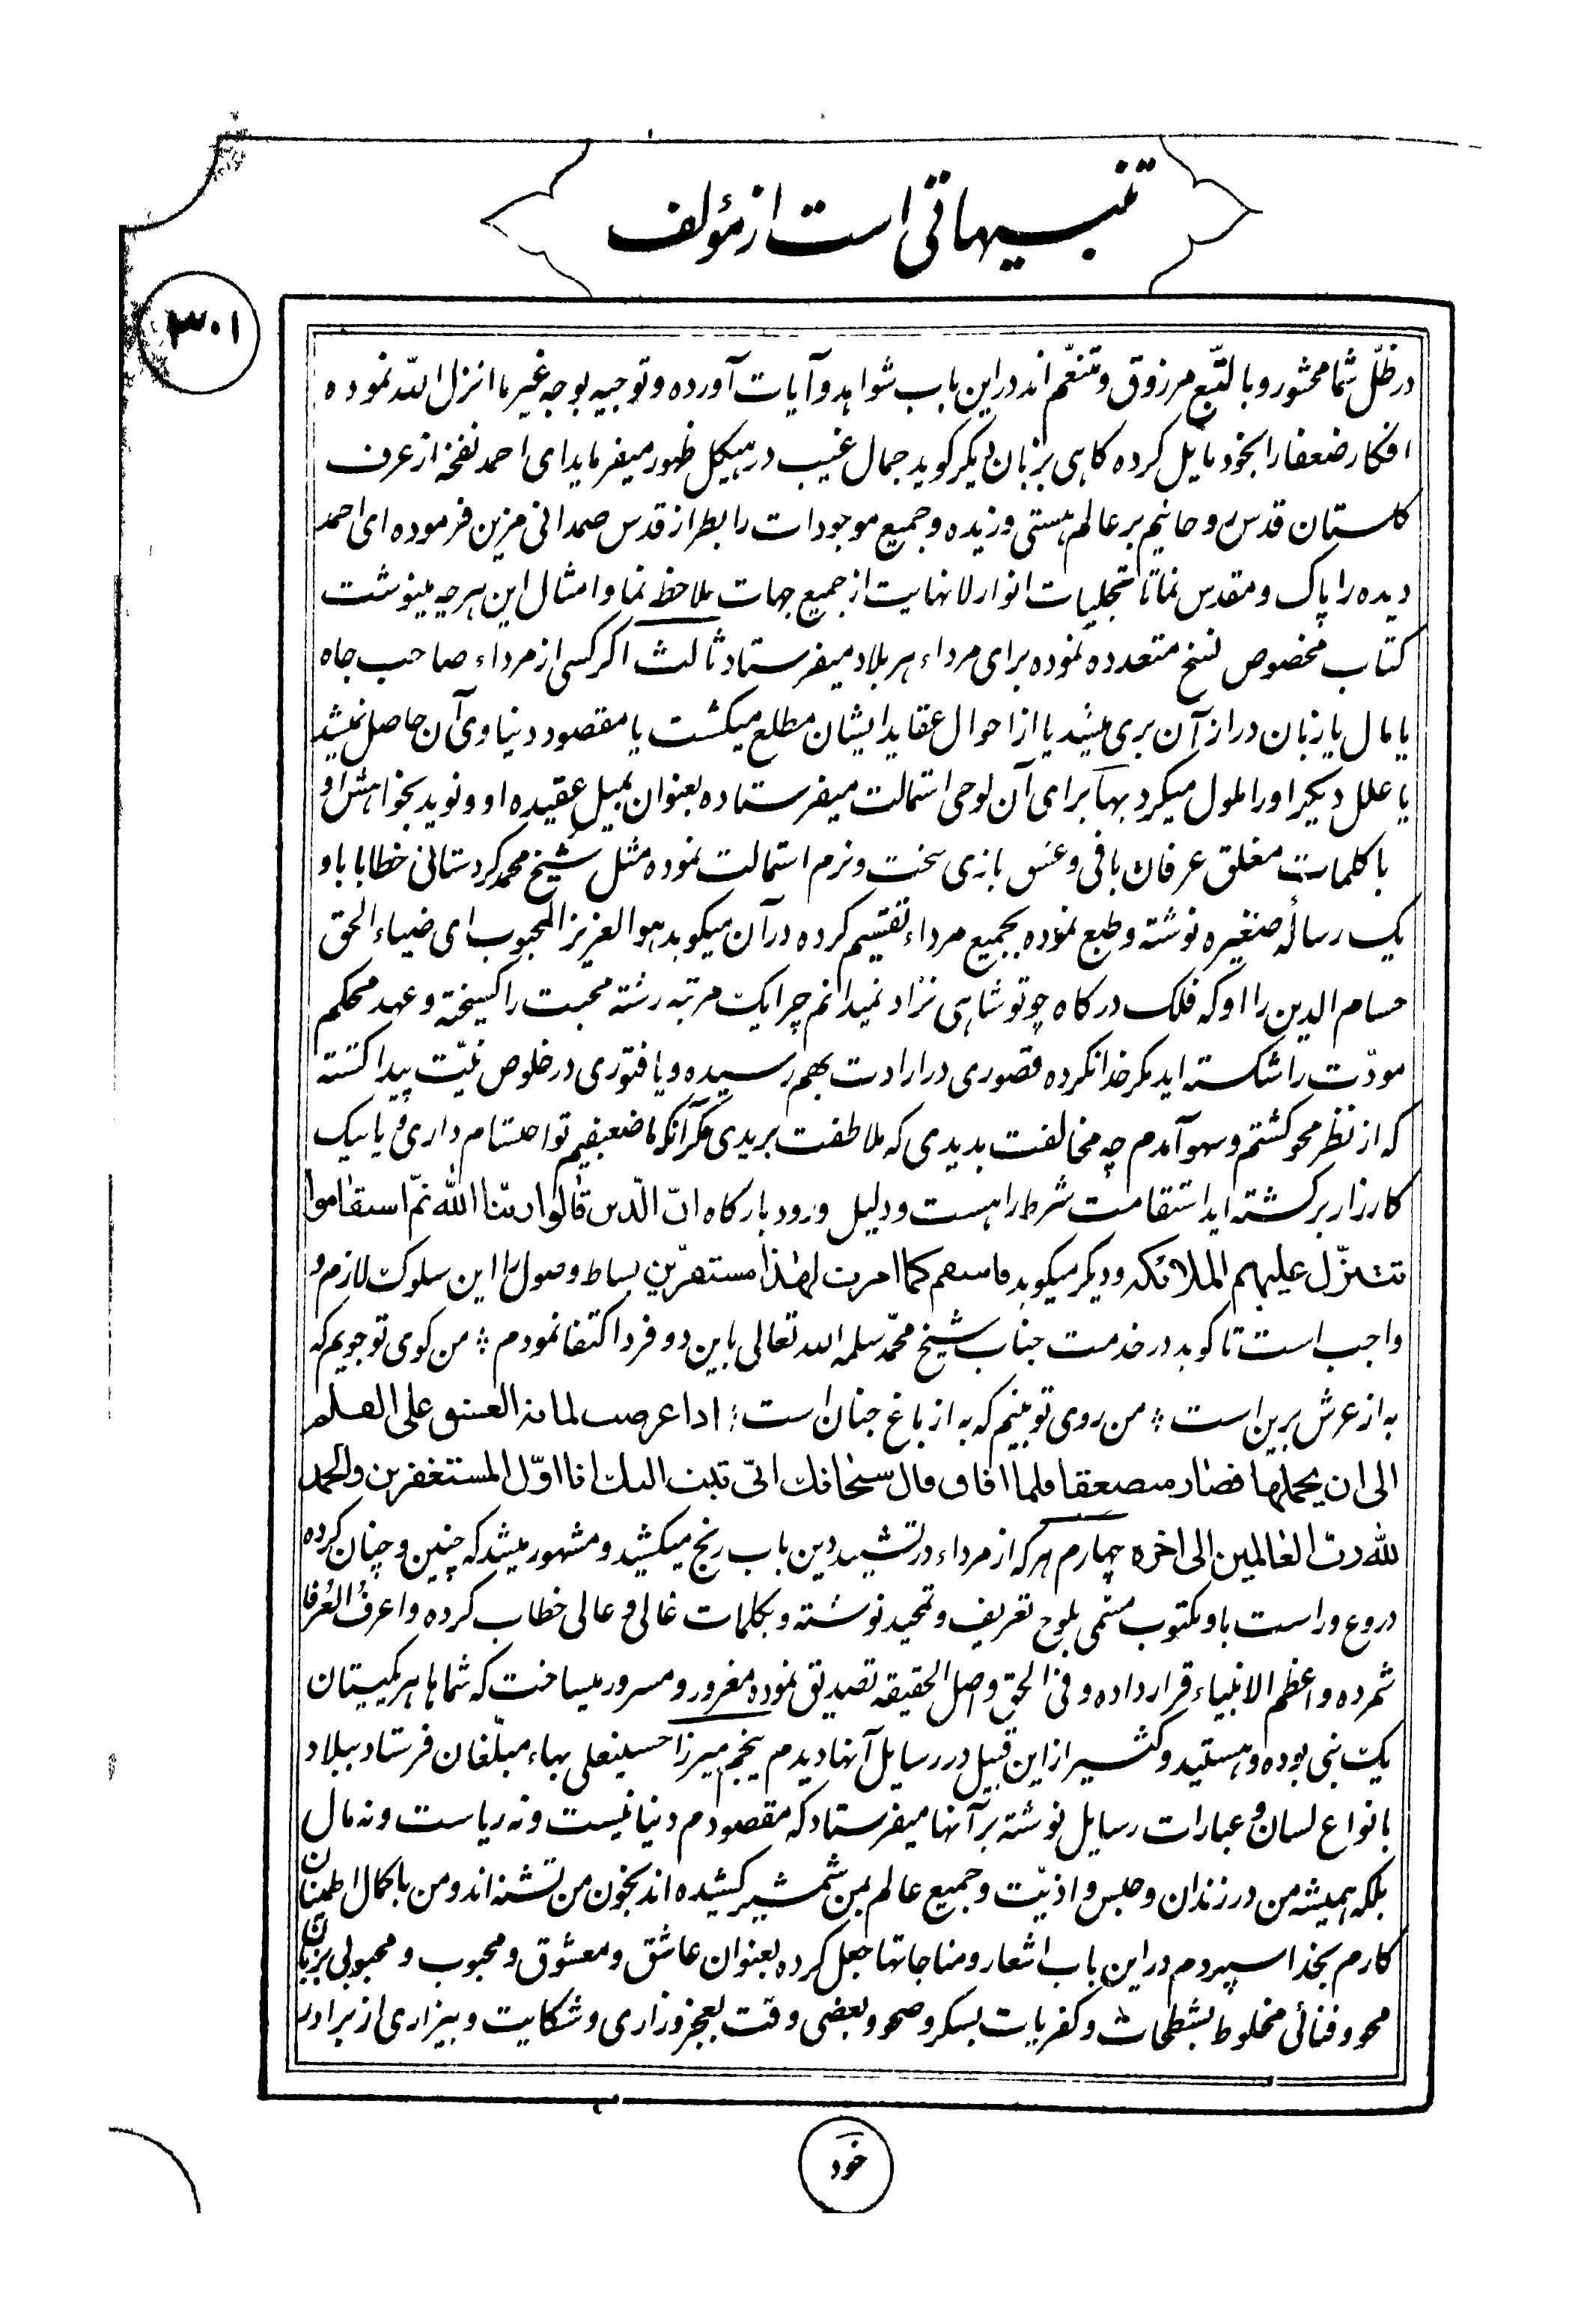 تنبیهاتی است از مؤلف
۳۰۱
در ظلّ شما محشور و بالتّبع مرزوق و متنعّم‌اند در این باب شواهد و آیات آورده و توجیه بوجه غیر ما انزل الله نموده
افکار ضعفا را بخود مایل کرده کاهی بزبان دیکر کوید جمال غیب در هیکل ظهور میفرماید ای احمد نفحهٔ از عرف
کلستان قدس روحانیم بر عالم هستی وزیده و جمیع موجودات را بطراز قدس صمدانی مزین فرموده ای احمد
دیده را پاک و مقدس نما تا تجلیات انوار لانهایت از جمیع جهات ملاحظه نما و امثال این هر چه مینوشت
کتاب مخصوص نسخ متعدده نموده برای مرداء هر بلاد میفرستاد ثالث اکر کسی از مرداء صاحب جاه
یا مال یا زبان دراز آن بری میشد یا از احوال عقاید ایشان مطلع میکشت یا مقصود دنیاوی آن حاصل نمیشد
یا علل دیکر او را ملول میکرد بهآ برای آن لوحی استمالت میفرستاده بعنوان بمیل عقیده او و نوید بخواهش او
با کلمات مغلق عرفان بافی و عنس بازی سخت و نرم استمالت نموده مثل شیخ محمد کردستانی خطابا باو
یک رسالهٔ صغیره نوشته و طبع نموده بجمیع مرداء تقسیم کرده در آن میکوید هو العزیز المحبوب ای ضیاء الحق
حسام الدین را او که فلک در کاه چو تو شاهی نزاد نمیدانم چرا یک مرتبه رشته محبت را کسیخته و عهد محکم
مودّت را شکسته اید مکر خدا نکرده قصوری در ارادت بهم رسیده و یا فتوری در خلوص نیّت پیدا کشته
که از نظر محو کشتم و سهو آمدم چه مخالفت بدیدی که ملاطفت بریدی مکر آنکه ما ضعیفیم تو احتشام داری و یا بیک
کارزار برکشته اید استقامت شرط راهست و دلیل ورود بارکاه انّ الّذین قالوا ربّنا الله ثمّ استقاموا
تتنزّل علیهم الملائکه و دیکر میکوید فاستقم کما امرت لهٰذا مستقرّین بساط وصول را این سلوک لازم و
واجب است تا کوید در خدمت جناب شیخ محمّد سلمه الله تعالی باین دو فرد اکتفا نمودم ؛ من کوی تو جویم که
به از عرش برین است ؛ من روی تو بینم که به از باغ جنان است ؛ العشق علی القلم
الی ان یحملها فصار منصعقا فلما افاق قال سبحانک انّی تبت الیک انا اوّل المستغفرین و الحمد
لله ربّ العالمین الی اخره چهارم هر که از مرداء در تشیید دین باب رنج میکشید و مشهور میشد که چنین و چنان کرده
دروغ و راست باو مکتوب مسمّی بلوح تعریف و تمجید نوشته و بکلمات غالی و عالی خطاب کرده و اعرف العُرفا
شمرده و اعظم الانبیاء قرار داده و فی الحق و اصل الحقیقه تصدیق نموده مغرور و مسرور میساخت که شماها هر یکیستان
یک نبی بوده و هستید و کثیر از این قبیل در رسایل آنها دیدم پنجم میرزا حسینعلی بهاء مبلّغان فرستاد ببلاد
با نواع لسان و عبارات رسایل نوشته بر آنها میفرستاد که مقصودم دنیا نیست و نه ریاست و نه مال
بلکه همیشه من در زندان و حبس و اذیّت و جمیع عالم بمن شمشیر کشیده اند بخون من تشنه اند و من با کمال اطمینان
کارم بخدا سپردم در این باب اشعار و مناجاتها جعل کرده بعنوان عاشق و معشوق و محبوب و محبوبی بزبان
محو و فنائی مخلوط بشطحات و کفریات بسکر و صحو و بعضی وقت بعجز و زاری و شکایت و بیزاری از برادر
خود